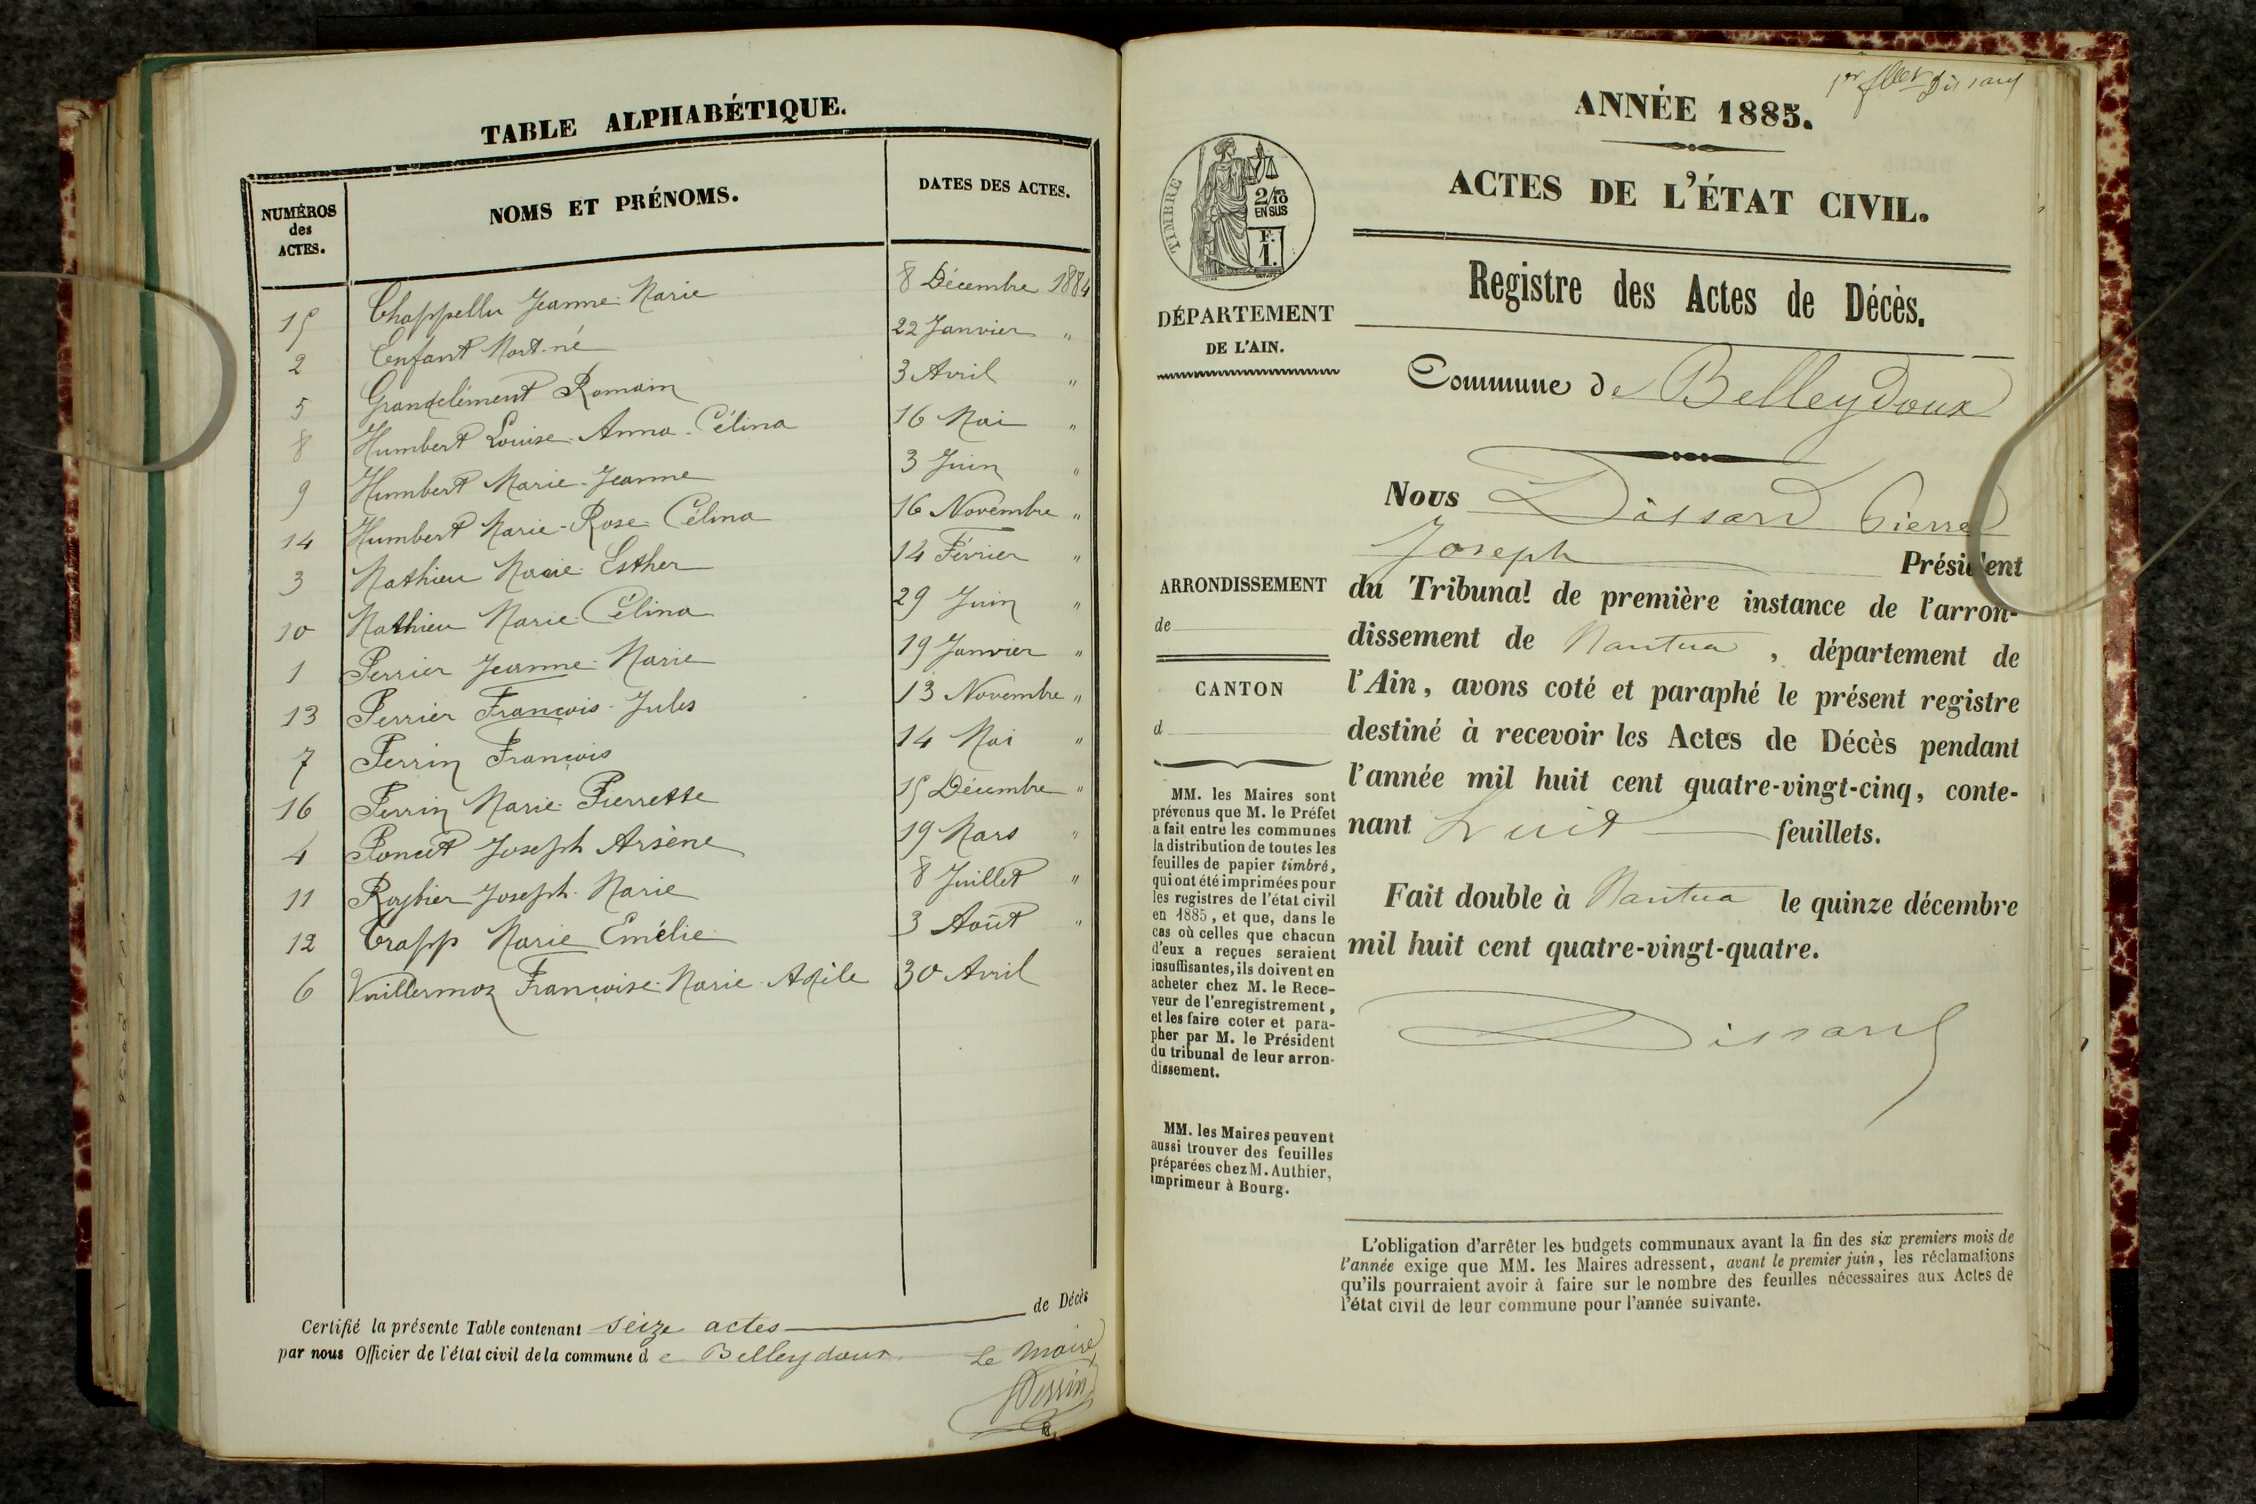 TABLE ALPHABÉTIQUE.
NUMÉROS
des
ACTES.
NOMS ET PRÉNOMS.
DATES DES ACTES.
15 Chappellu Jeanne-Marie 8 Décembre 1884
2 Enfant Mort-né 22 Janvier "
5 Grandclément Romain 3 Avril "
8 Humbert Louise-Anna-Célina 16 Mai "
9 Humbert Marie-Jeanne 3 Juin "
14 Humbert Marie-Rose-Célina 16 Novembre "
3 Mathieu Marie-Esther 14 Février "
10 Mathieu Marie-Célina 29 Juin "
1 Perrier Jeanne-Marie 19 Janvier "
13 Perrier François-Jules 13 Novembre "
7 Perrin François 14 Mai "
16 Perrin Marie-Pierrette 15 Décembre "
4 Poncet Joseph Arsène 19 Mars "
11 Roybier Joseph-Marie 8 Juillet "
12 Trapp Marie Emélie 3 Août "
6 Vuillermoz Françoise-Marie-Adèle 30 Avril
Certifié la présente Table contenant seize actes de Décès
par nous Officier de l'état civil de la commune de Belleydoux. Le Maire
Perrin
1er Dissard
ANNÉE 1885.
ACTES DE L'ÉTAT CIVIL.
Registre des Actes de Décès.
Commune de Belleydoux
TIMBRE
2/10
EN SUS
F.
1.
DÉPARTEMENT
DE L'AIN.
ARRONDISSEMENT
de
CANTON
d
MM. les Maires sont
prévenus que M. le Préfet
a fait entre les communes
la distribution de toutes les
feuilles de papier timbré,
qui ont été imprimées pour
les registres de l'état civil
en 1885, et que, dans le
cas où celles que chacun
d'eux a reçues seraient
insuffisantes, ils doivent en
acheter chez M. le Rece-
veur de l'enregistrement,
et les faire coter et para-
pher par M. le Président
du tribunal de leur arron-
dissement.
MM. les Maires peuvent
aussi trouver des feuilles
préparées chez M. Authier,
imprimeur à Bourg.
Nous Dissard Pierre
Joseph Président
du Tribunal de première instance de l'arron-
dissement de Nantua, département de
l'Ain, avons coté et paraphé le présent registre
destiné à recevoir les Actes de Décès pendant
l'année mil huit cent quatre-vingt-cinq, conte-
nant huit feuillets.
Fait double à Nantua le quinze décembre
mil huit cent quatre-vingt-quatre.
Dissard
L'obligation d'arrêter les budgets communaux avant la fin des six premiers mois de
l'année exige que MM. les Maires adressent, avant le premier juin, les réclamations
qu'ils pourraient avoir à faire sur le nombre des feuilles nécessaires aux Actes de
l'état civil de leur commune pour l'année suivante.